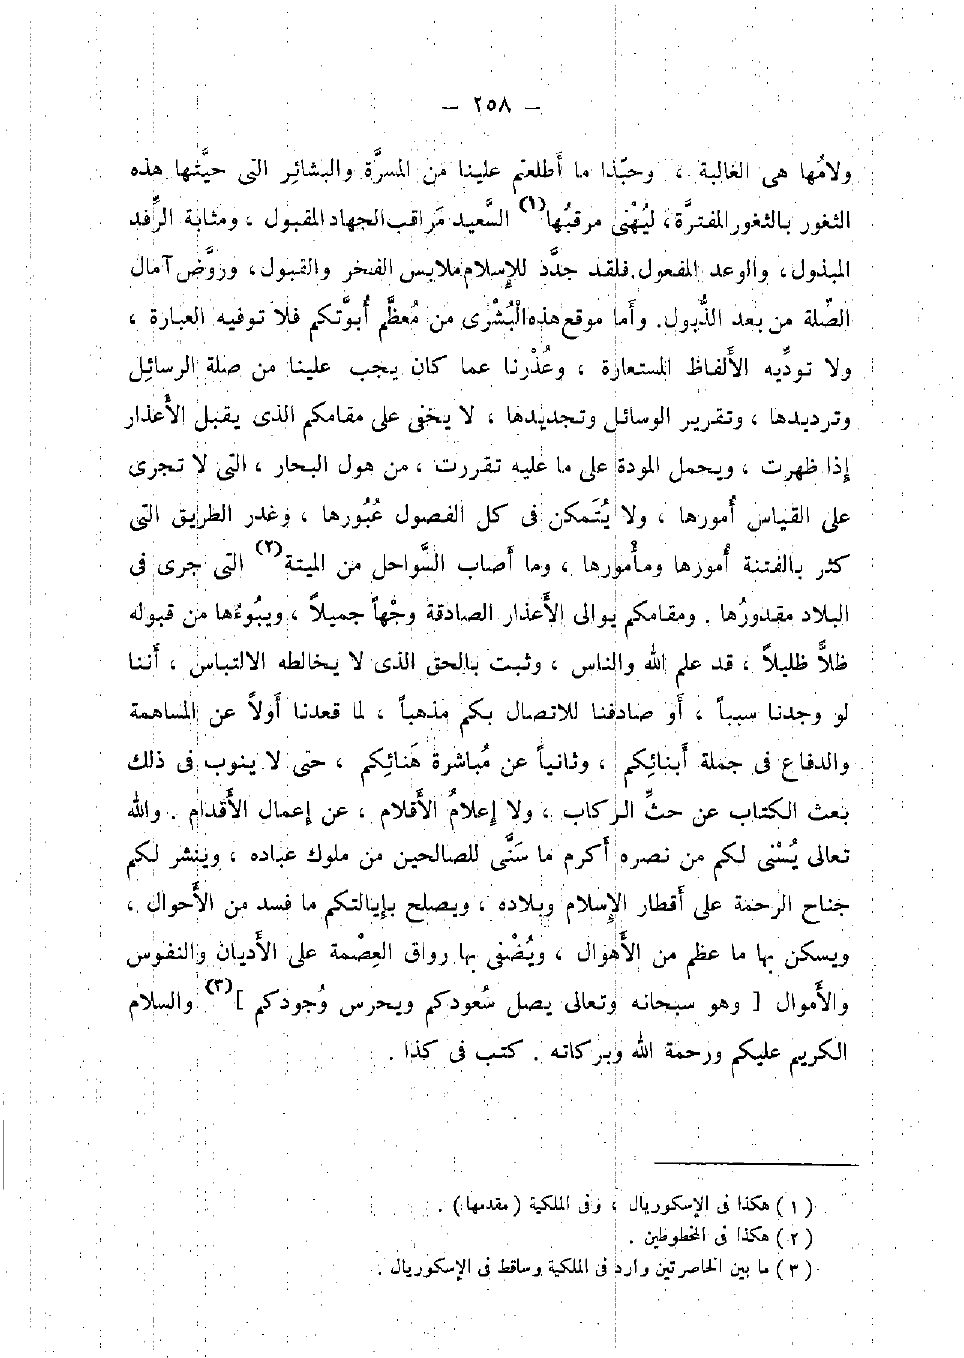 — ٢٥٨ —
ولامُها هى الغالبة ، وحبّذا ما أطلعتم علينا من المسرَّة والبشائِر التى حيَّتها هذه
الثغور بالثغور المفترَّة، ليُهْنى مرقبُها(١) السَّعيد مَراقب الجهاد المقبول ، ومثابة الرِّفد
المبذول ، والوعد المفعول . فلقد جدَّد للإسلام ملابس الفخر والقبول ، وروَّض آمال
الضِّلة من بعد الذُّبول . وأما موقع هذه الْبُشْرى من مُعظَّم أُبوَّتكم فلا توفيه العبارة ،
ولا تودِّيه الأَلفاظ المستعارة ، وعُذْرنا عما كان يجب علينا من صلة الرسائِل
وترديدها ، وتقرير الوسائل وتجديدها ، لا يخفى على مقامكم الذى يقبل الأَعذار
إذا ظهرت ، ويحمل المودة على ما عليه تقررت ، من هول البحار ، التى لا تجرى
على القياس أُمورها ، ولا يُتَمكن فى كل الفصول عُبُورها ، وغدر الطريق التى
كثر بالفتنة أُمورُها ومأْمورُها ، وما أَصاب السَّواحل من الميتة(٢) التى جرى فى
البلاد مقدورُها . ومقامكم يوالى الأَعذار الصادقة وجْهاً جميلاً ، ويبُوءُها من قبوله
ظلاًّ ظليلاً ، قد علم الله والناس ، وثبت بالحق الذى لا يخالطه الالتباس ، أَننا
لو وجدنا سبباً ، أَو صادفنا للاتصال بكم مذهباً ، لما قعدنا أَولاً عن المساهمة
والدفاع فى جملة أَبنائِكم ، وثانياً عن مُباشرة هَنائِكم ، حتى لا ينوب فى ذلك
بعث الكتاب عن حثِّ الركاب ، ولا إعلامُ الأَقلام ، عن إعمال الأَقدام . والله
تعالى يُسْنى لكم من نصره أَكرم ما سَنَّى للصالحين من ملوك عباده ، وينشر لكم
جناح الرحمة على أَقطار الإسلام وبلاده ، ويصلح بإيالتكم ما فسد من الأَحوال ،
ويسكن بها ما عظم من الأَهوال ، ويُضْفى بها رواق العِصْمة على الأَديان والنفوس
والأَموال [ وهو سبحانه وتعالى يصل سُعودكم ويحرس وُجودكم ](٣) والسلام
الكريم عليكم ورحمة الله وبركاته . كتب فى كذا .
( ١ ) هكذا فى الإسكوريال ، وفى الملكية ( مقدمها ) .
( ٢ ) هكذا فى المخطوطين .
( ٣ ) ما بين الخاصرتين وارد فى الملكية وساقط فى الإسكوريال .